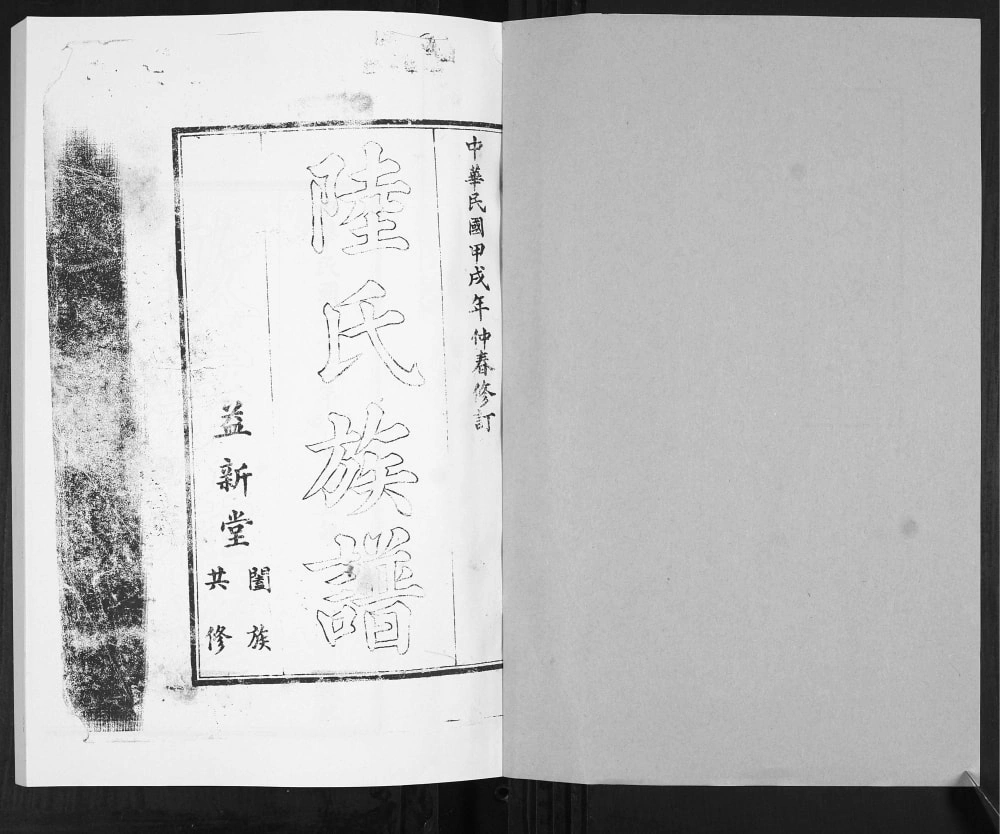 中華民國甲戌年仲春修訂
陸氏族譜
益新堂
闔族
共修